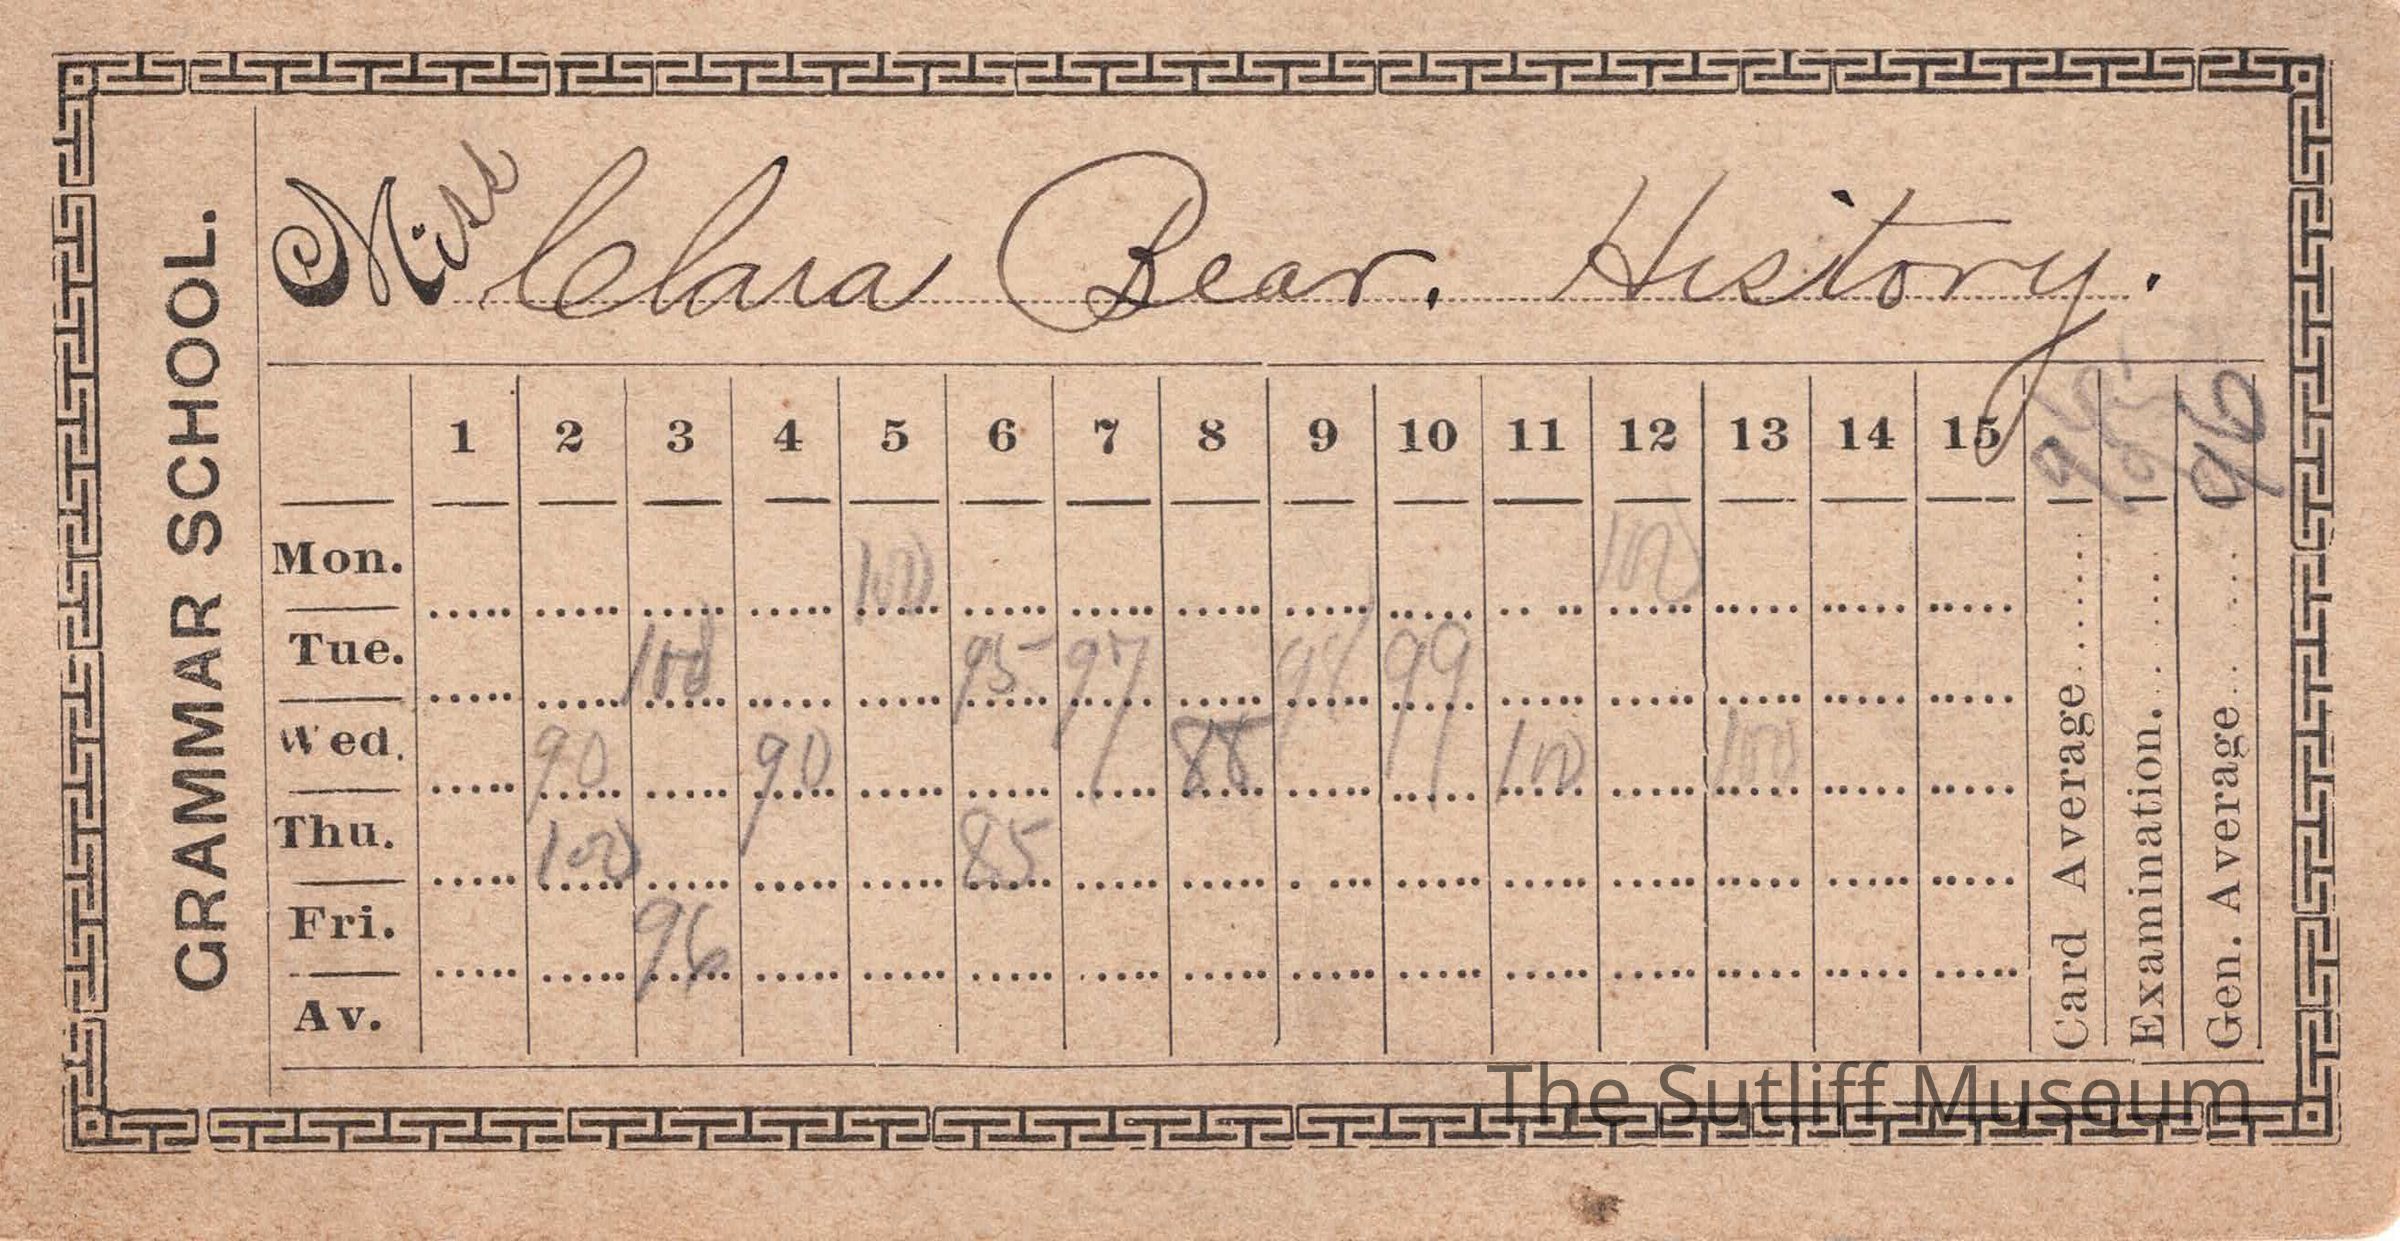 GRAMMAR SCHOOL.
Miss Clara Bear. History.
1 2 3 4 5 6 7 8 9 10 11 12 13 14 15 96 96
Mon. 100 100
Tue. 100 95 97 98 99
Wed. 90 90 88 100 100
Thu. 100 85
Fri. 96
Av.
Card Average
Examination
Gen. Average
The Sutliff Museum